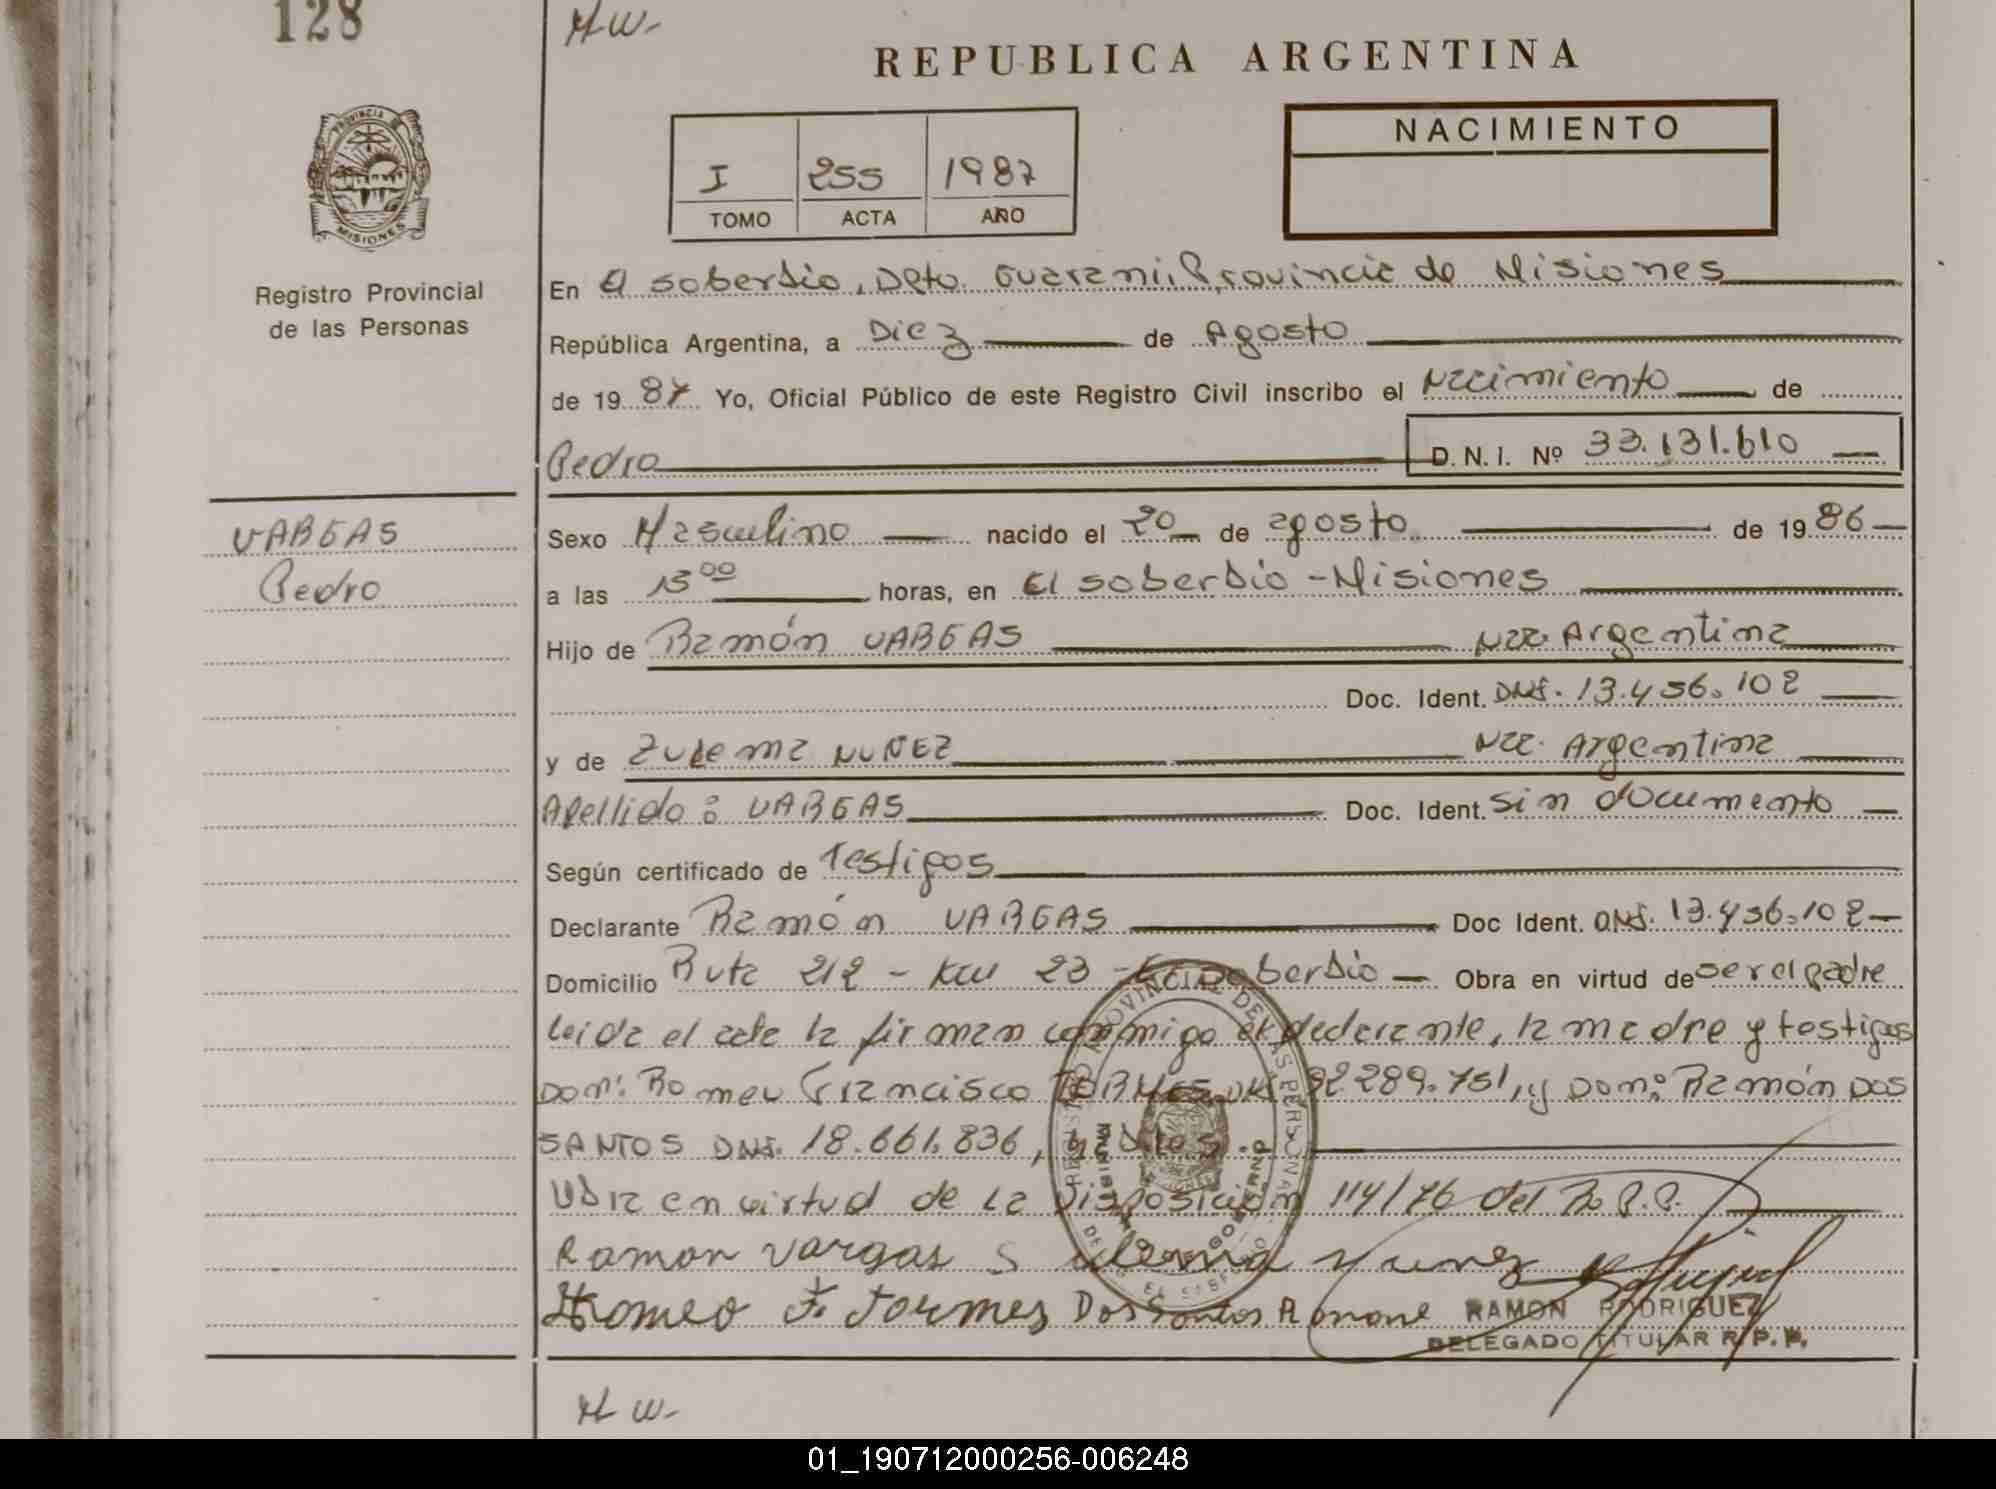 128
H w-
REPUBLICA ARGENTINA
PROVINCIA DE
MISIONES
Registro Provincial
de las Personas
I 255 1987
TOMO ACTA AÑO
NACIMIENTO
En El soberbio, Dpto Guarani, Provincia de Misiones
República Argentina, a Diez de Agosto
de 1987 Yo, Oficial Público de este Registro Civil inscribo el Nacimiento de
Pedro D.N.I. Nº 33.131.610
VARGAS
Pedro
Sexo Masculino nacido el 20 de agosto de 1986
a las 15⁰⁰ horas, en El soberbio - Misiones
Hijo de Ramón VARGAS Nac. Argentina
Doc. Ident. DNI. 13.456.102
y de Zulema NUÑEZ Nac. Argentina
Apellido: VARGAS Doc. Ident. Sin documento
Según certificado de Testigos
Declarante Ramón VARGAS Doc Ident. DNI. 13.456.102
Domicilio Ruta 212 - Km 23 - El soberbio Obra en virtud de ser el padre
Leida el acta la firman conmigo el declarante, la madre y testigos
Don: Romeu Francisco TORMES DNI 92.289.751, y Don: Ramón DOS
SANTOS DNI. 18.661.836, habiles.
Obra en virtud de la Disposición 114/76 del R.P.P.
Ramon Vargas Sulema Nunez
Romeo F. Tormes Dos Santos Ramone RAMON RODRIGUEZ
DELEGADO TITULAR R.P.P.
REGISTRO PROVINCIAL DE LAS PERSONAS
MINISTERIO DE GOBIERNO
H w-
01_190712000256-006248